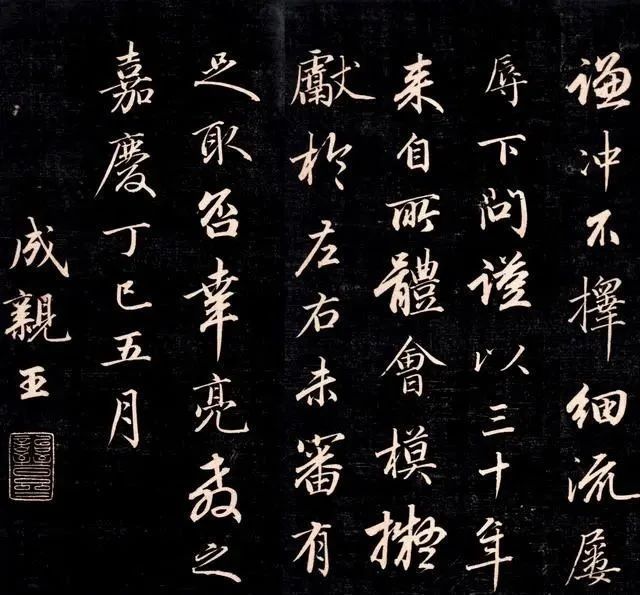 謙沖不擇細流屢
辱下問謹以三十年
来自所體會模擬
獻於左右未審有
足取否幸亮教之
嘉慶丁巳五月
成親王